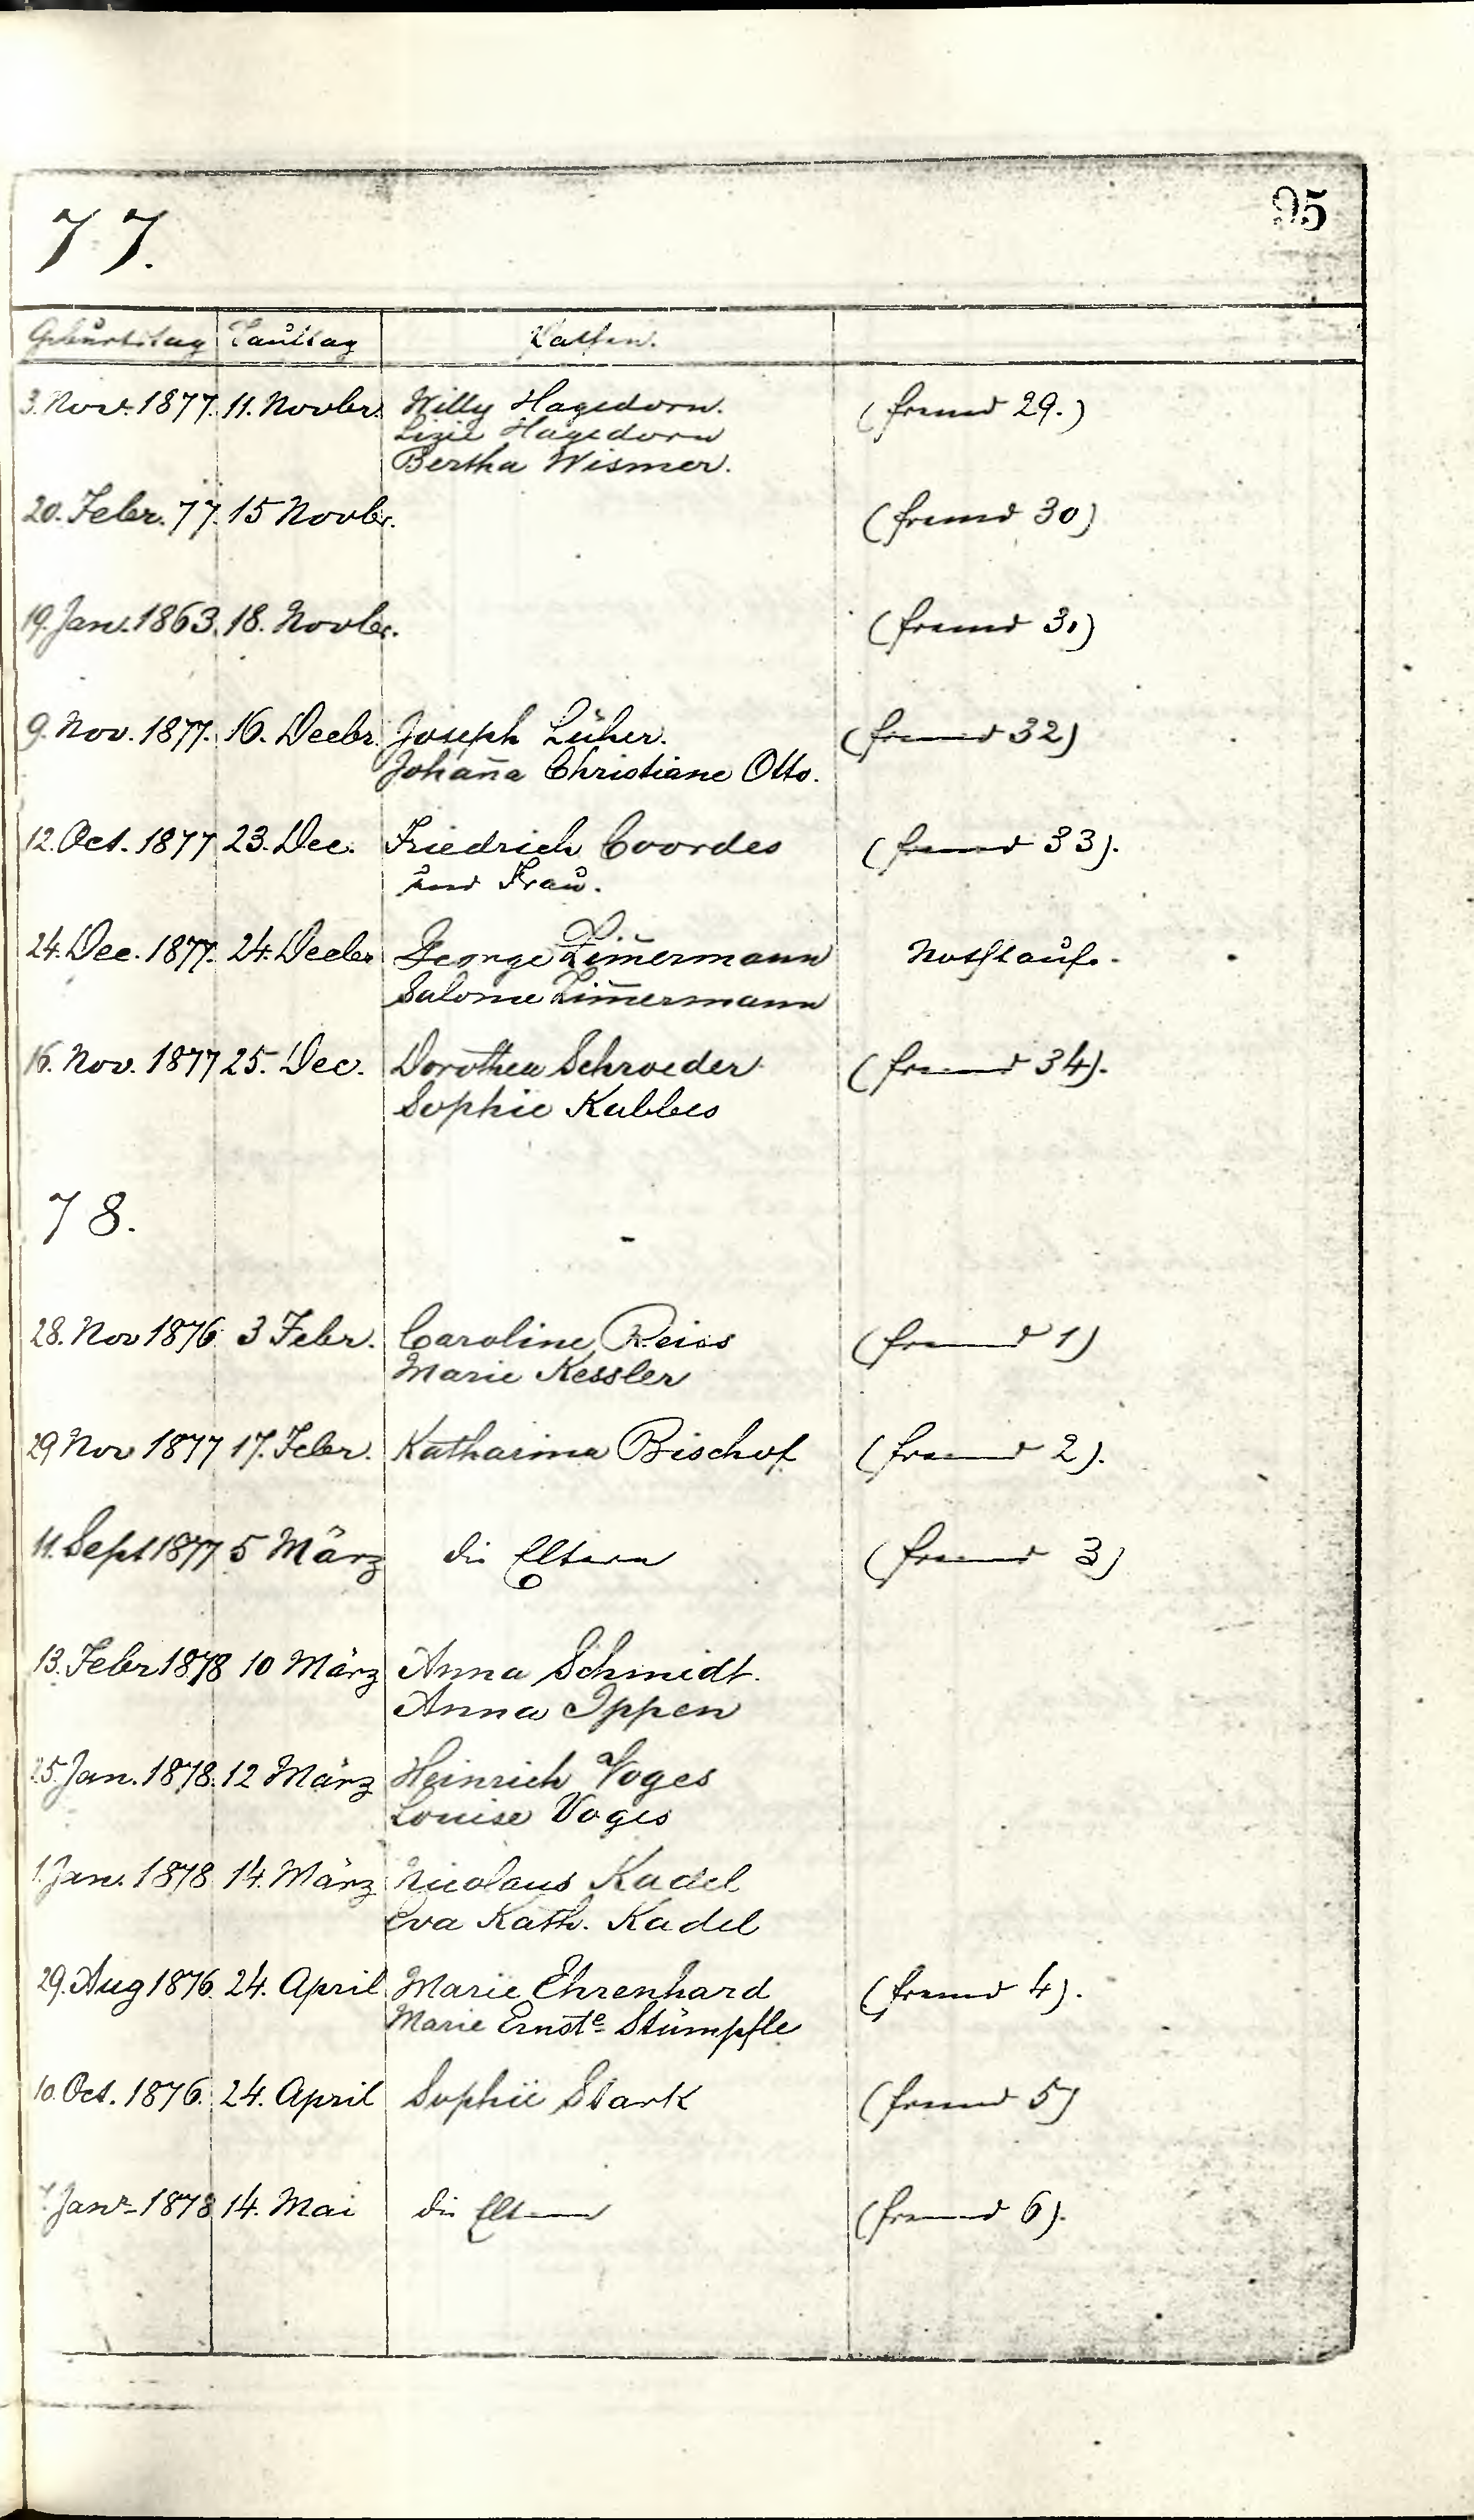 77.
95
Geburtstag Tauftag Pathen.
3. Nov. 1877. 11. Novbr. Willy Hagedorn. (fremd 29.)
Lizie Hagedorn
Bertha Wismer.
20. Febr. 77. 15 Novbr. (fremd 30)
19. Jan. 1863. 18. Novbr. (fremd 31)
9. Nov. 1877. 16. Decbr. Joseph Lüher. (fremd 32)
Johan̄a Christiane Otto.
12. Oct. 1877 23. Dec. Friedrich Coordes (fremd 33).
und Frau.
24. Dec. 1877. 24. Decbr George Zim̄ermann Nothtaufe.
Salome Zim̄ermann
16. Nov. 1877 25. Dec. Dorothea Schroeder (fremd 34).
Sophie Kabbes
78.
28. Nov 1876 3 Febr. Caroline Reiss (fremd 1)
Marie Kessler
29 Nov 1877 17. Febr. Katharina Bischof (fremd 2).
11. Sept 1877 5 März die Eltern (fremd 3)
13. Febr 1878 10 März Anna Schmidt.
Anna Ippen
25. Jan. 1878. 12 März Heinrich Voges
Louise Voges
1. Jan. 1878 14. März Nicolaus Kadel
Eva Kath. Kadel
29. Aug 1876 24. April Marie Ehrenhard (fremd 4).
Marie Ernste Stümpfle
10. Oct. 1876. 24. April Sophie Stark (fremd 5)
Janr 1878 14. Mai die Eltern (fremd 6).